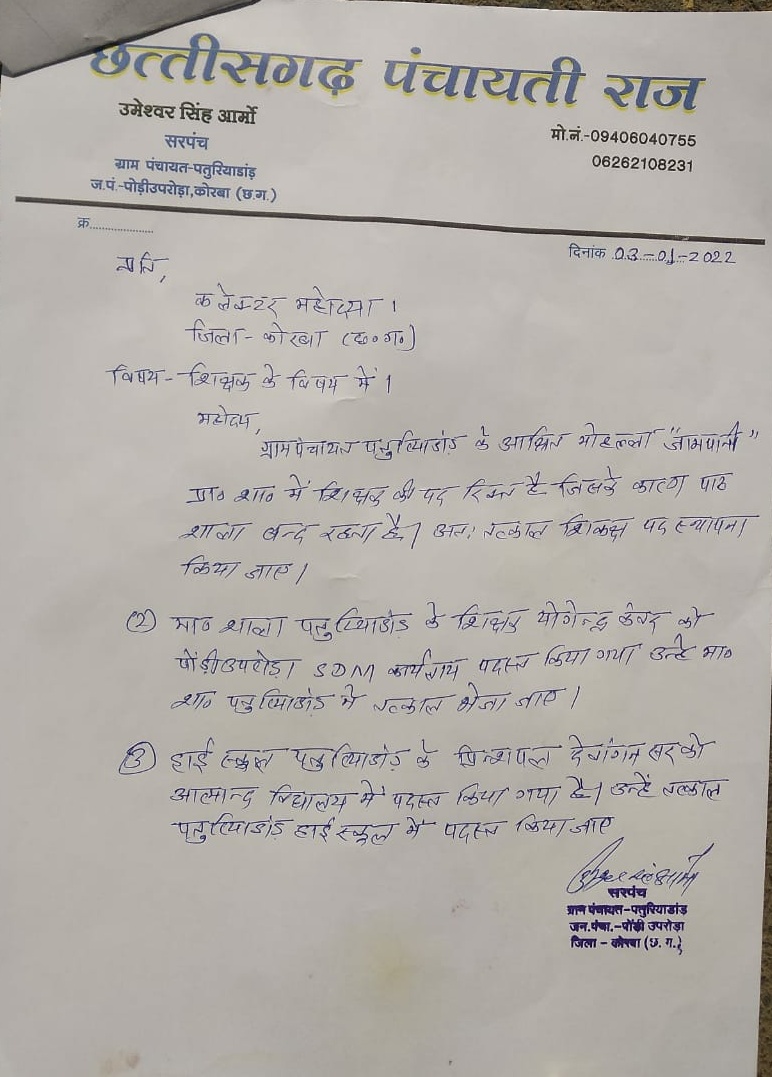 छत्तीसगढ़ पंचायती राज
उमेश्वर सिंह आर्मो
सरपंच
ग्राम पंचायत-पतुरियाडांड़
ज.पं.-पोड़ीउपरोड़ा,कोरबा (छ.ग.)
मो.नं.-09406040755
06262108231
क्र....................
दिनांक 03-01-2022
प्रति,
कलेक्टर महोदया ।
जिला - कोरबा (छ०ग०)
विषय - शिक्षक के विषय में ।
महोदय,
ग्रामपंचायत पतुरियाडांड़ के आश्रित मोहल्ला "जामपानी"
प्रा० शा० में शिक्षक की पद रिक्त है जिसके कारण पाठ
शाला बन्द रहता है। अतः तत्काल शिक्षक पद स्थापना
किया जाए।
(2) मा० शाला पतुरियाडांड़ के शिक्षक योगेन्द्र कंवर को
पोंड़ीउपरोड़ा SDM कार्यलाय पदस्त किया गया उन्हे मा०
शा० पतुरियाडांड़ में तत्काल भेजा जाए।
(3) हाई स्कूल पतुरियाडांड़ के प्रिन्शपल देवांगन सर को
आत्मान्द विद्यालय में पदस्त किया गया है। उन्हें तत्काल
पतुरियाडांड़ हाई स्कूल में पदस्त किया जाए
सरपंच
ग्राम पंचायत-पतुरियाडांड़
जन.पंचा.-पोंड़ी उपरोड़ा
जिला - कोरबा (छ. ग.)